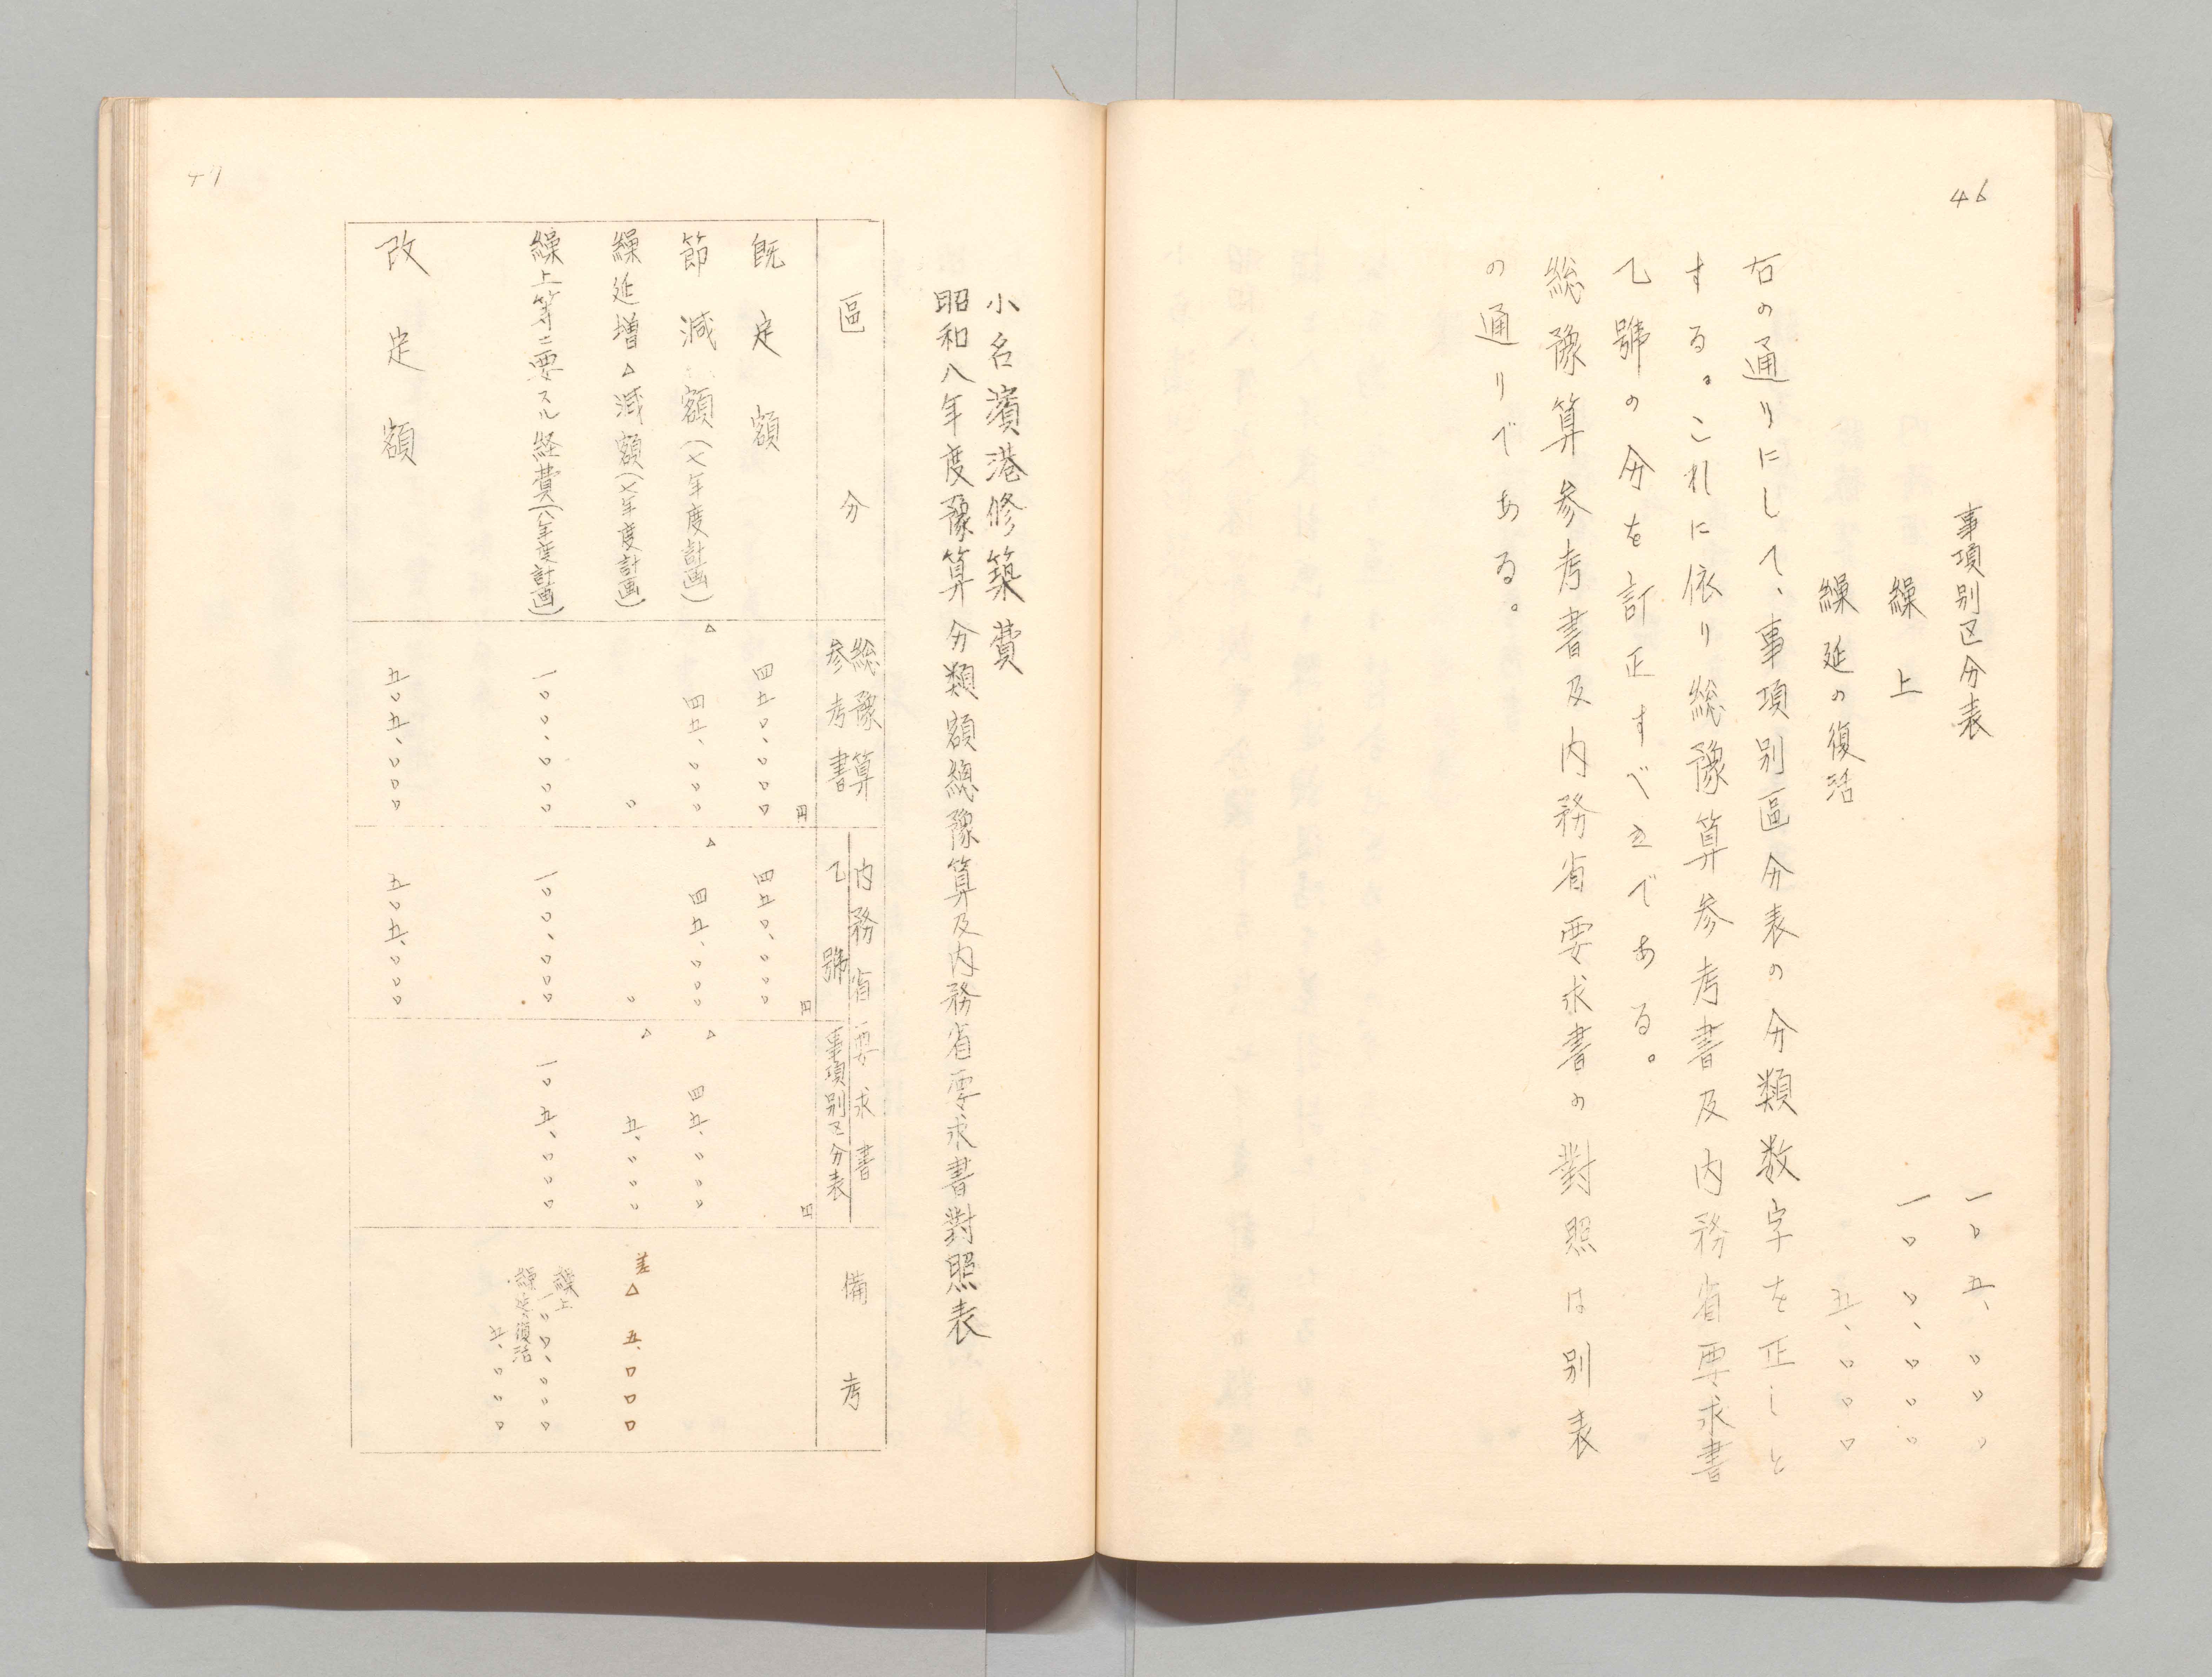 46
事項別区分表 一〇五、〇〇〇
繰上 一〇〇、〇〇〇
繰延の復活 五、〇〇〇
右の通りにして、事項別區分表の分類数字を正しと
する。これに依り総豫算参考書及内務省要求書
乙號の分を訂正すべきである。
総豫算参考書及内務省要求書の對照は別表
の通りである。
47
小名濱港修築費
昭和八年度豫算分類額總豫算及内務省要求書對照表
區分
総豫算
参考書
内務省要求書
乙號
事項別区分表
備考
円
円
円
既定額 四五〇、〇〇〇 四五〇、〇〇〇
節減額(七年度計画) △ 四五、〇〇〇 △ 四五、〇〇〇 △ 四五、〇〇〇
繰延増△減額(七年度計画) 〇 〇 △ 五、〇〇〇 差△ 五、〇〇〇
繰上等ニ要スル経費(八年度計画) 一〇〇、〇〇〇 一〇〇、〇〇〇 一〇五、〇〇〇
繰上
一〇〇、〇〇〇
繰延復活
五、〇〇〇
改定額 五〇五、〇〇〇 五〇五、〇〇〇